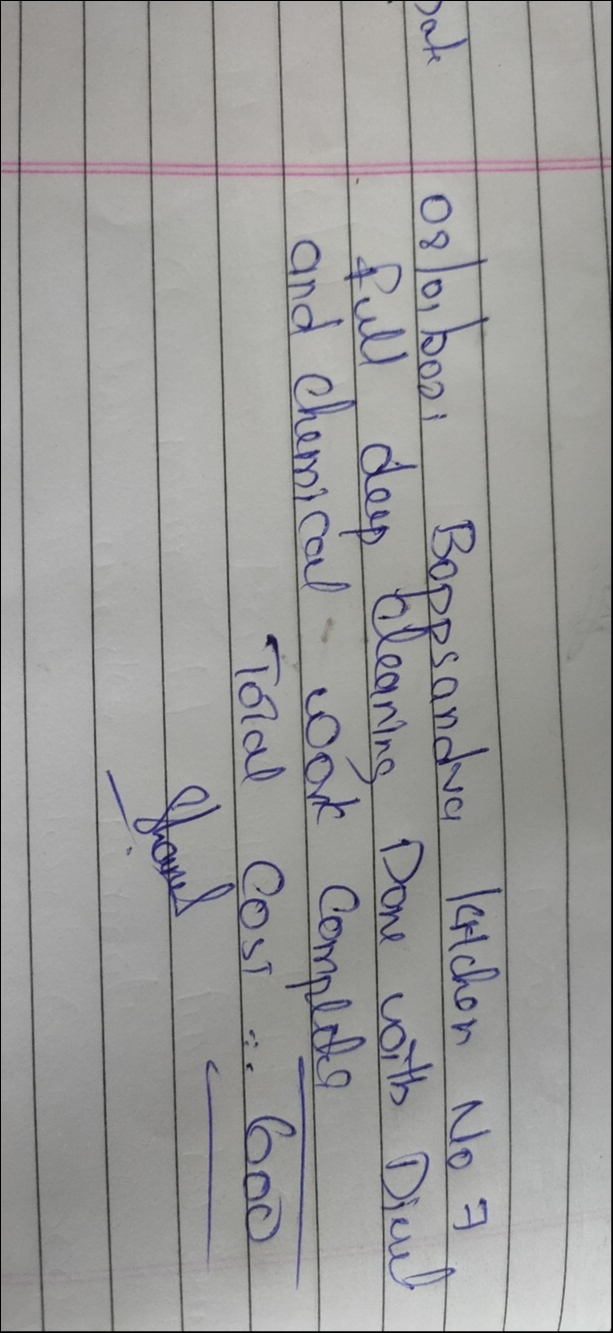 Date 08/01/2021 Boppsandra Kitchen No 7
full deep cleaning Done with Diesel
and chemical work complete
Total Cost :- 600